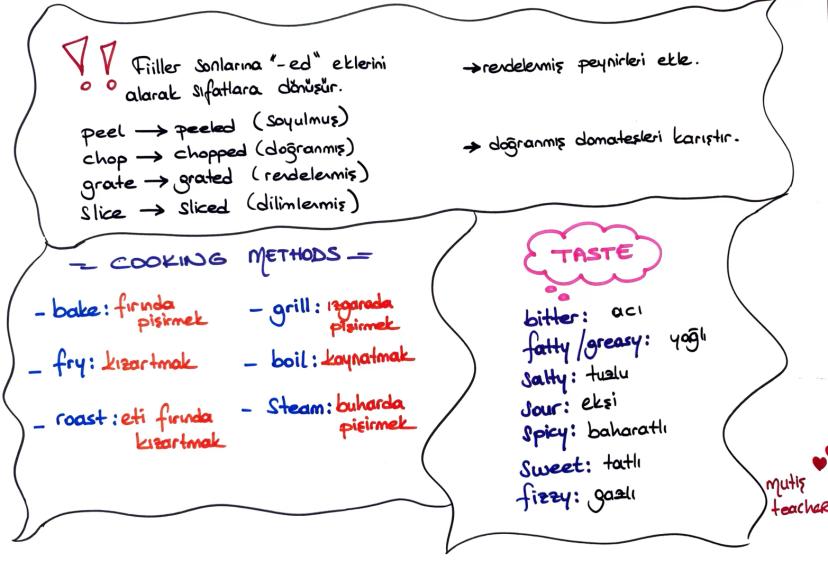 !! Fiiller sonlarına "-ed" eklerini
alarak sıfatlara dönüşür.
peel → peeled (soyulmuş)
chop → chopped (doğranmış)
grate → grated (rendelenmiş)
slice → sliced (dilimlenmiş)
→ rendelenmiş peynirleri ekle.
→ doğranmış domatesleri karıştır.
= COOKING METHODS =
- bake: fırında
pişirmek
- fry: kızartmak
- roast: eti fırında
kızartmak
- grill: ızgarada
pişirmek
- boil: kaynatmak
- Steam: buharda
pişirmek
TASTE
bitter: acı
fatty/greasy: yağlı
salty: tuzlu
sour: ekşi
spicy: baharatlı
sweet: tatlı
fizzy: gazlı
mutiş
teacher